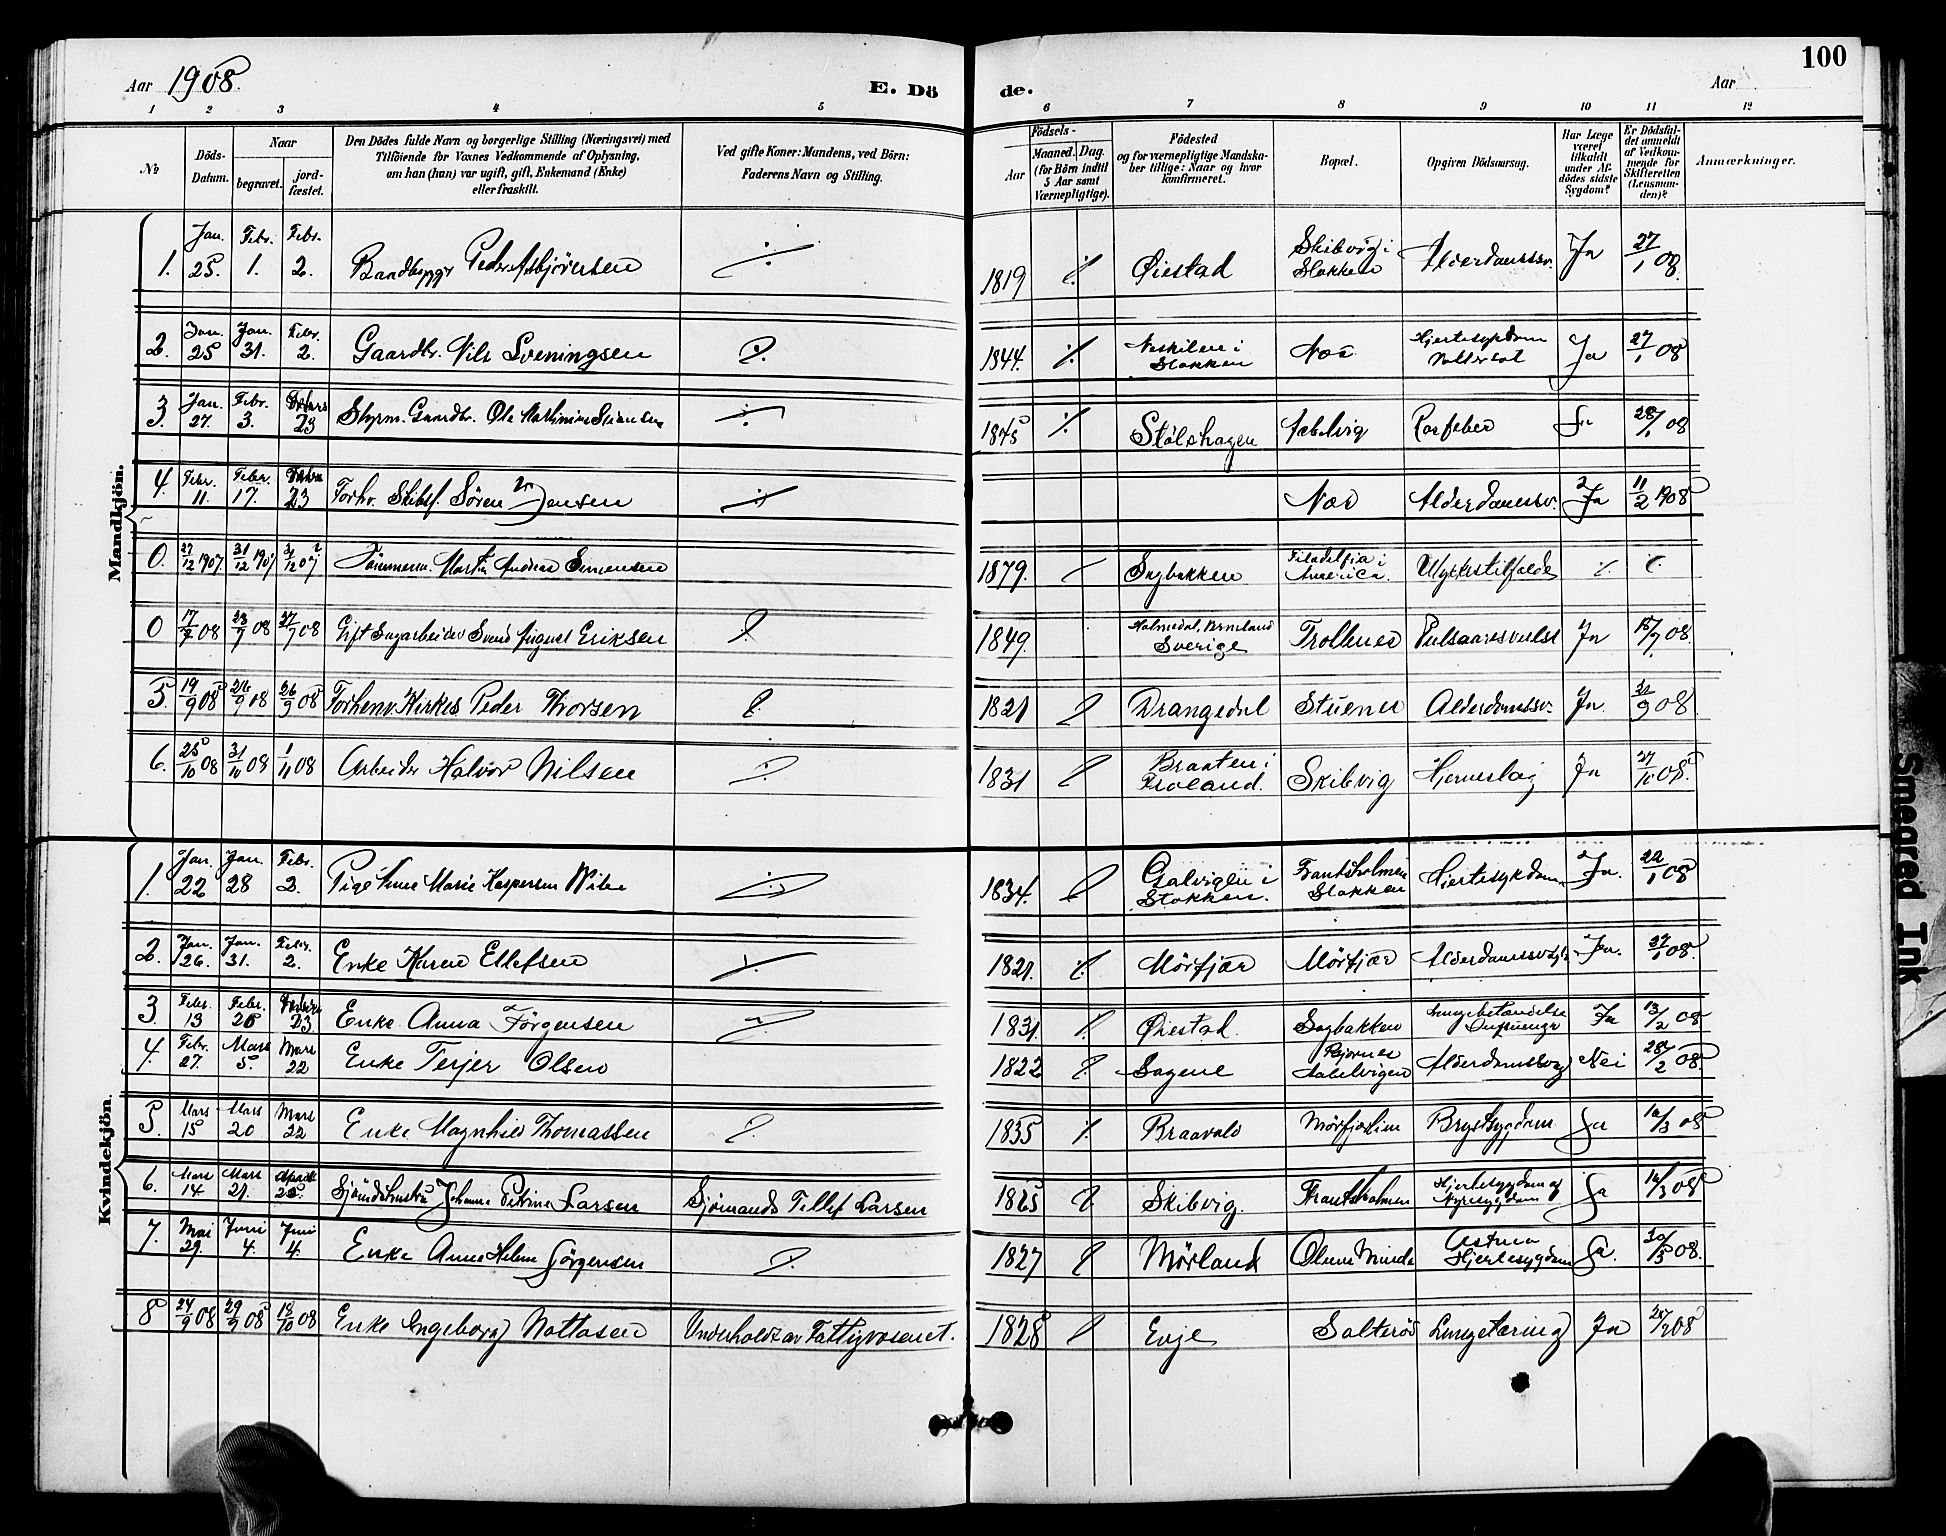 Aar 1908. E. Dö de. Aar 100
1 2 3 4 5 6 7 8 9 10 11 12
No
Döds-Datum.
Naar
begravet.
jordfæstet.
Den Dödes fulde Navn og borgerlige Stilling (Næringsvei) med
Tilföiende for Voxnes Vedkommende af Oplysning,
om han (hun) var ugift, gift, Enkemand (Enke)
eller fraskilt.
Ved gifte Koner: Mandens, ved Börn:
Faderens Navn og Stilling.
Födsels-
Aar
Maaned. Dag.
(for Börn indtil
5 Aar samt
Værnepligtige).
Födested
og for værnepligtige Mandskaber tillige: Naar og hvor
konfirmeret.
Bopæl.
Opgiven Dödsaarsag.
Har Læge
været
tilkaldt
under Afdödes sidste
Sygdom?
Er Dödsfaldet anmeldt
af Vedkommende for
Skifteretten
(Lensmanden)?
Anmærkninger.
Mandkjön.
1. Jan. 25. Febr. 1. Febr. 2. Peder Asbjörnsen 1819 Öiestad Skibvig i Stokken Alderdomssv. Ja 27/1 08.
2. Jan. 25 Jan. 31. Febr. 2. Gaardbr. Nils Sveningsen 1844. Neskilen i Stokken Næs Hjertesygdom Ja 27/1 08
3. Jan. 27. Febr. 3. 23 Styrm. Gaardbr. Ole 1845 Stölshagen Ja 28/1 08
4. Febr. 11. Febr. 17. 23 Forhv. Skibsf. Sören Jensen Næs Alderdomssv. Ja 11/2 1908
0. 27/12 1907. 31/12 1907 31/12 07 Tömmerm. Martin Andreas Simensen 1879. Sagbakken Filadelfia i America. Ulykkestilfælde
0 17/7 08 23/7 08 27/7 08 Gift Sagarbeider Svend August Eriksen 1849. Sverige Trollnes Pulsaaresvulst Ja 18/7 08.
5. 19/9 08 26/9 08 26/9 08 Forhenv. Kirkes. Peder Thorsen 1821 Drangedal Stuenes Alderdomssv. Ja 21/9 08
6. 25/10 08 31/10 08 1/11 08 Arbeider Halvor Nilsen 1831 Braaten i Froland. Skibvig Hjerneslag Ja 27/10 08.
Kvindekjön.
1. Jan. 22 Jan. 28 Febr. 2. Pige Anne Marie Kaspersen Wibe 1834. Galvigen i Stokken. Frantsholmen Stokken Hjertesykdom Ja. 22/1 08
2. Jan. 26. Jan. 31. Febr. 2. Enke Karen Ellefsen 1821. Mörfjær Mörfjær Ja. 27/1 08.
3. Febr. 13 Febr. 20 23 Enke Anna Jörgensen 1831. Öiestad. Sagbakken Lungebetændelse Influenza Ja 13/2 08
4. Febr. 27. Mars 5. Mars 22 Enke Terjer Olsen 1822 Sagene Alderdomssvag Nei 28/2 08.
5. Mars 15 Mars 20 Mars 22 Enke Magnhild Thomassen 1835 Braavold Brystsygdom Ja 16/3 08
6. Mars 14 Mars 21. Johanne Petrine Larsen Sjömands Tellef Larsen 1865 Skibvig. Frantsholmen Hjertesygdom og Nyresygdom Ja 16/3 08
7. Mai 29. Juni 4. Juni 4. Enke Anne Helene Jörgensen 1827 Mörland Astma Hjertesygdom Ja. 30/5 08.
8 24/9 08 29/9 08 18/10 08 Enke Ingeborg Understöd av Fattigvæsenet. 1828 Evje Salteröd Lungetæring Ja 25/9 08
Smeared Ink